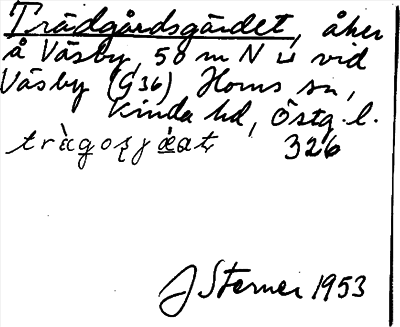 Trädgårdsgärdet, åker
å Väsby, 50 m N u vid
Väsby (G36) Horns sn,
Kinda hd, Östg. l.
326
J Sterner 1953